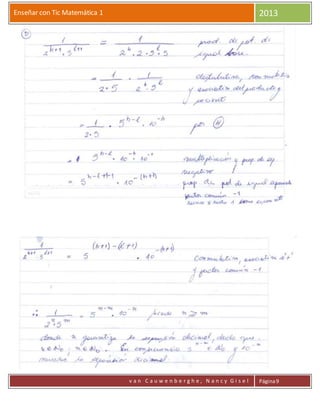 Enseñar con Tic Matemática 1 2013
1 / 2^(h+1) · 5^(l+1) = 1 / 2^h · 2 · 5 · 5^l prod. de pot. de
igual base.
= 1 / 2·5 · 1 / 2^h · 5^l distributiva, conmutativa
y asociativa del producto y
cociente
= 1 / 2·5 · 5^(h-l) · 10^(-h) por
5^(h-l) · 10^(-h) · 10 multiplicación y prop de ep.
negativo
= 5^(h-l+1-1) · 10^(-(h+1)) prop de pot de igual
factor común -1
1 / 2^(h+1) 5^(l+1) = 5^((h+1)-(l+1)) · 10^(-(h+1)) Conmutativa, asociativa
y factor común -1
∴ 1 / 2^n · 5^m = 5^(n-m) · 10^(-n) n ≥ m
donde n garantiza la expansión decimal, dado que
n ∈ N₀ ; m ∈ N₀ . En consecuencia 5^(n-m) y 10^(-n)
muestra la expansión decimal.
van Cauwenberghe, Nancy Gisel Página 9